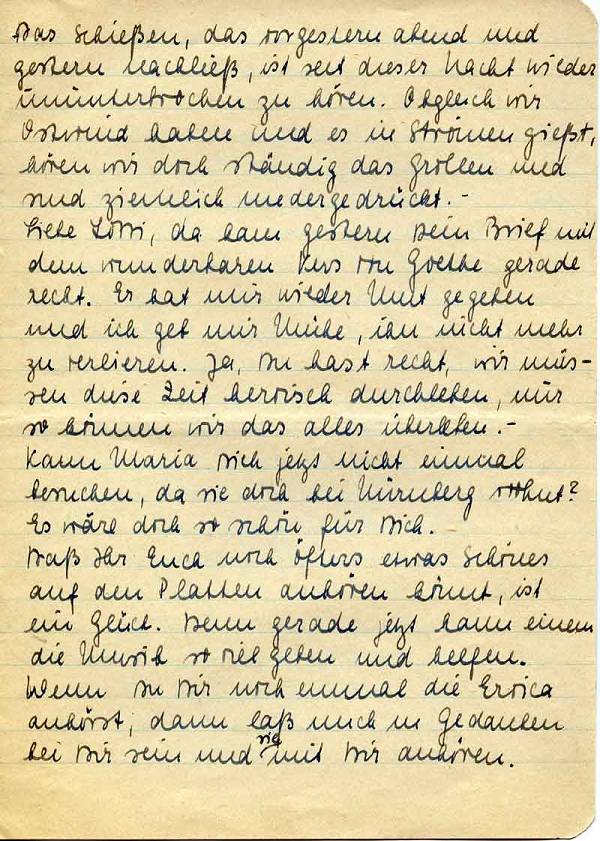 Das Schießen, das vorgestern abend und
gestern nachließ, ist seit dieser Nacht wieder
ununterbrochen zu hören. Obgleich wir
Ostwind haben und es in Strömen gießt,
hören wir doch ständig das Grollen und
sind ziemlich niedergedrückt.-
Liebe Lotti, da kam gestern Dein Brief mit
dem wunderbaren Vers von Goethe gerade
recht. Er hat mir wieder Mut gegeben
und ich geb mir Mühe, ihn nicht mehr
zu verlieren. Ja, Du hast recht, wir müs-
sen diese Zeit heroisch durchleben, nur
so können wir das alles überleben.-
Kann Maria Dich jetzt nicht einmal
besuchen, da sie doch bei Nürnberg wohnt?
Es wäre doch so schön für Dich.
Daß Ihr Euch noch öfters etwas Schönes
auf den Platten anhören könnt, ist
ein Glück. Denn gerade jetzt kann einem
die Musik so viel geben und helfen.
Wenn Du Dir noch einmal die Eroica
anhörst, dann laß mich in Gedanken
bei Dir sein und sie mit Dir anhören.